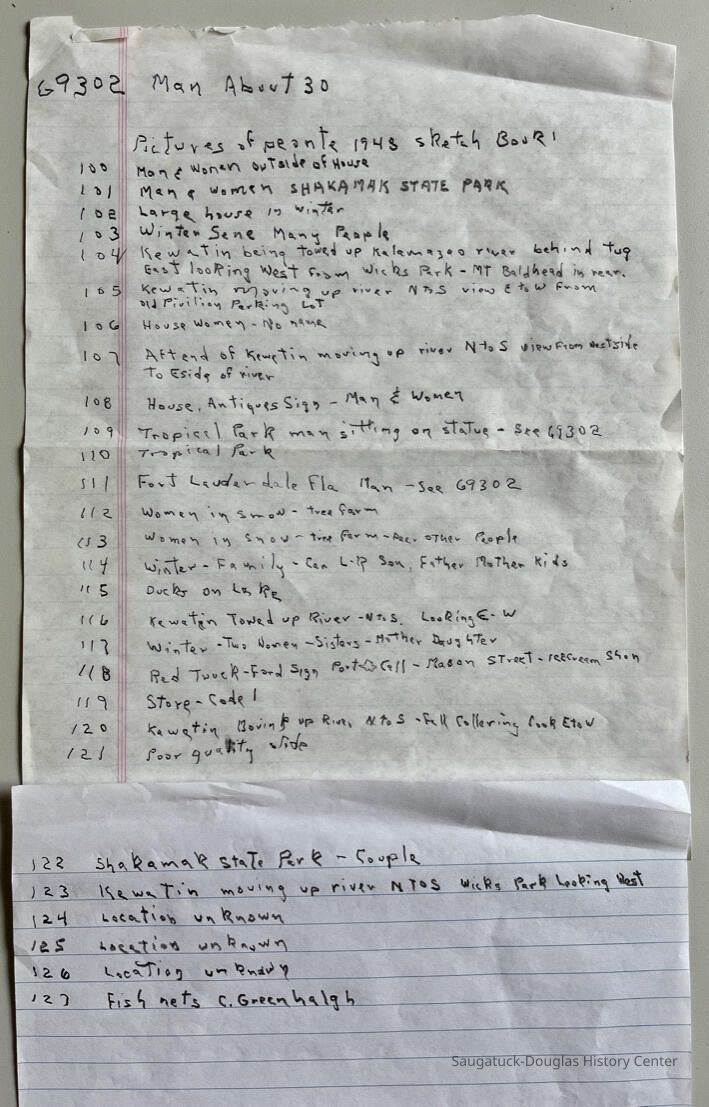 69302 Man About 30
Pictures of peante 1943 sketch Book 1
100 Man & Women outside of House
101 Man & Women SHAKAMAK STATE PARK
102 Large house in winter
103 Winter Sene Many People
104 Kewatin being towed up Kalamazoo river behind tug
East looking West from Wicks Park - MT Baldhead in rear.
105 Kewatin moving up river NToS view E to W From
old Pivilion Parking LoT
106 House Women - No name
107 Aft end of Kewatin moving up river NToS view From westside
To Eside of river
108 House, Antiques Sign - Man & Women
109 Tropical Park man sitting on statue - See 69302
110 Tropical Park
111 Fort Lauderdale Fla Man - See 69302
112 Women in snow - tree farm
113 Women in snow - tree farm - other People
114 Winter - Family - Can L-R Son, Father Mother Kids
115 Ducks on Lake
116 Kewatin Towed up River - NToS. Looking E-W
117 Winter - Two Women - Sisters - Mother Daughter
118 Red Truck - Ford Sign Port Call - Mason STreet - Icecream Shop
119 Store - Code 1
120 Kewatin Moving up River NToS - Fall Collering Look E to W
121 Poor quality slide
122 Shakamak State Park - Couple
123 Kewatin moving up river NTOS Wicks Park Looking West
124 Location unknown
125 Location unknown
126 Location unknown
127 Fish nets C. Greenhalgh
Saugatuck-Douglas History Center